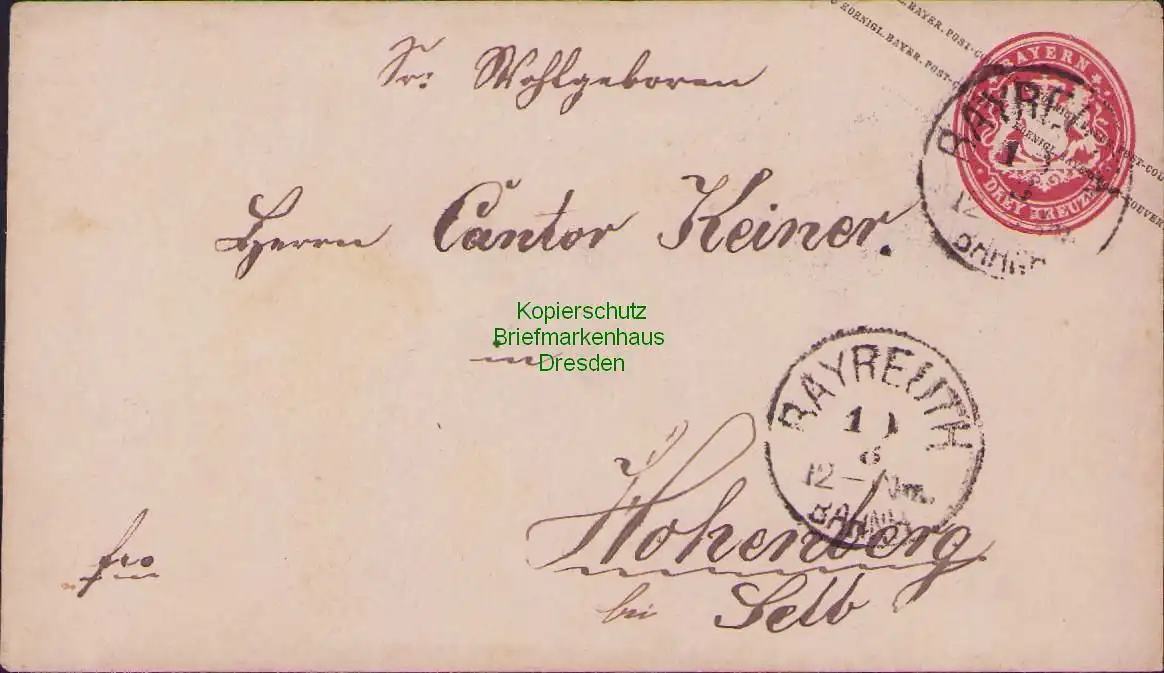 KOENIGL. BAYER. POST-COUVERT
BAYERN
DREY KREUZER
BAYREUTH
12
BAHNH
Sr: Wohlgeboren
Herrn Cantor Keiner.
in
Kopierschutz
Briefmarkenhaus
Dresden
BAYREUTH
6
12 – 1 Nm.
BAHNH
Hohenberg
bei Selb
fro